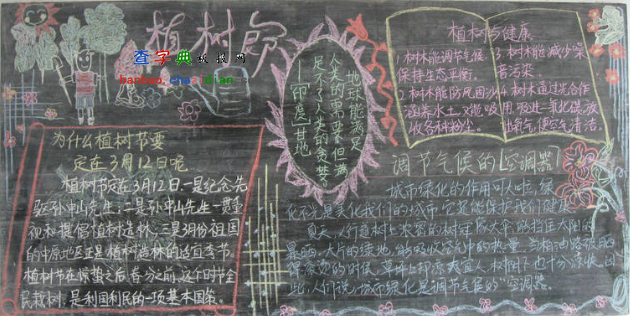 植树节
查字典
为什么植树节要
定在3月12日呢
植树节定在3月12日.一是纪念先
驱孙中山先生;二是孙中山先生一贯重
视和提倡植树造林.三是3月份祖国
的中原地区正是植树造林的适宜季节.
植树节在惊蛰之后.春分之前.这个时节全
民栽树.是利国利民的一项基本国策。
地球能满足
人类的需要.但满
足不了人类的贪婪
—印度甘地
植树与健康
1.树木能调节气候
保持生态平衡。
2.树木能防风固沙
涵养水土.又能吸
收各种粉尘。
3.树木能减少噪
音污染
4.树木通过光合作
用.吸进二氧化碳.放
出氧气.使空气清洁.
调节气候的「空调器」
城市绿化的作用可大啦,绿
化不光是美化我们的城市.它还能保护我们健康.
夏天,人行道树上
大片的绿地,能吸收空气中的热量.
的时候,草坪上却凉爽宜人.树荫下也十分凉快.因
此,人们说,城市绿化是调节气候的"空调器。